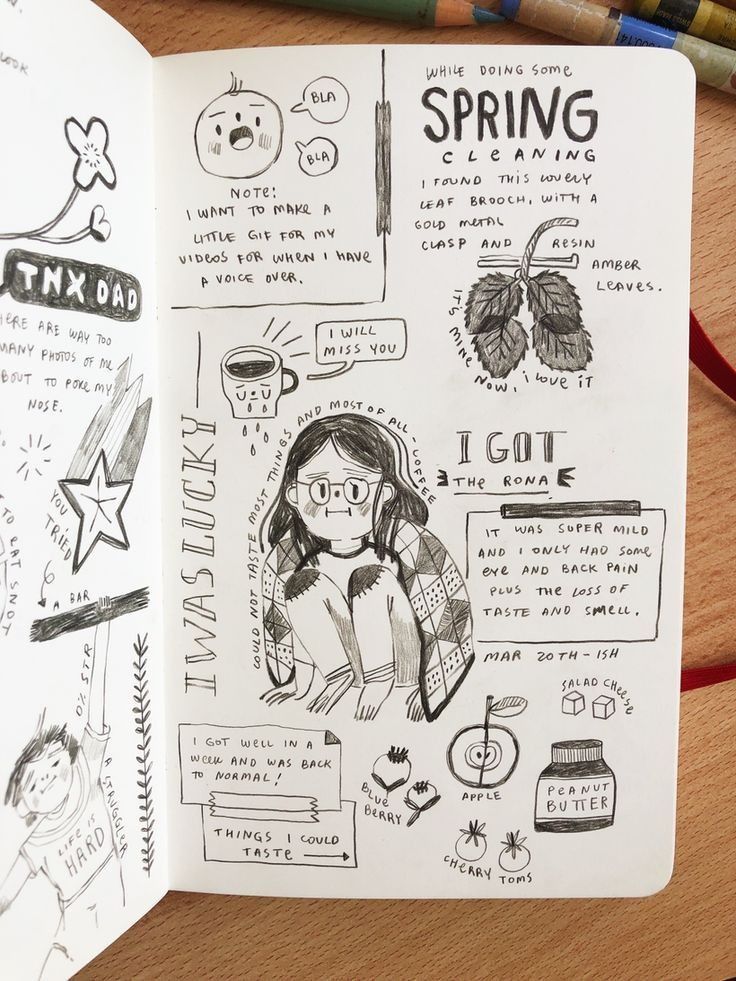 W.
LOOK
TNX DAD
HERE ARE WAY TOO
MANY PHOTOS OF ME
ABOUT TO POKE MY
NOSE.
YOU
TRIED
TO EAT SNOT
A BAR
0% STR
A STRUGGLER
LIFE IS
HARD
BLA
BLA
NOTE:
I WANT TO MAKE A
LITTLE GIF FOR MY
VIDEOS FOR WHEN I HAVE
A VOICE OVER.
WHILE DOING SOME
SPRING
CLEANING
I FOUND THIS LOVELY
LEAF BROOCH, WITH A
GOLD METAL
CLASP AND RESIN
AMBER
LEAVES.
IT'S MINE NOW, I LOVE IT
I WILL
MISS YOU
I WAS LUCKY
COULD NOT TASTE MOST THINGS AND MOST OF ALL - COFFEE
I GOT
THE RONA
IT WAS SUPER MILD
AND I ONLY HAD SOME
EYE AND BACK PAIN
PLUS THE LOSS OF
TASTE AND SMELL.
MAR 20TH - ISH
I GOT WELL IN A
WEEK AND WAS BACK
TO NORMAL!
THINGS I COULD
TASTE
BLUE
BERRY
APPLE
SALAD CHEESE
PEANUT
BUTTER
CHERRY TOMS